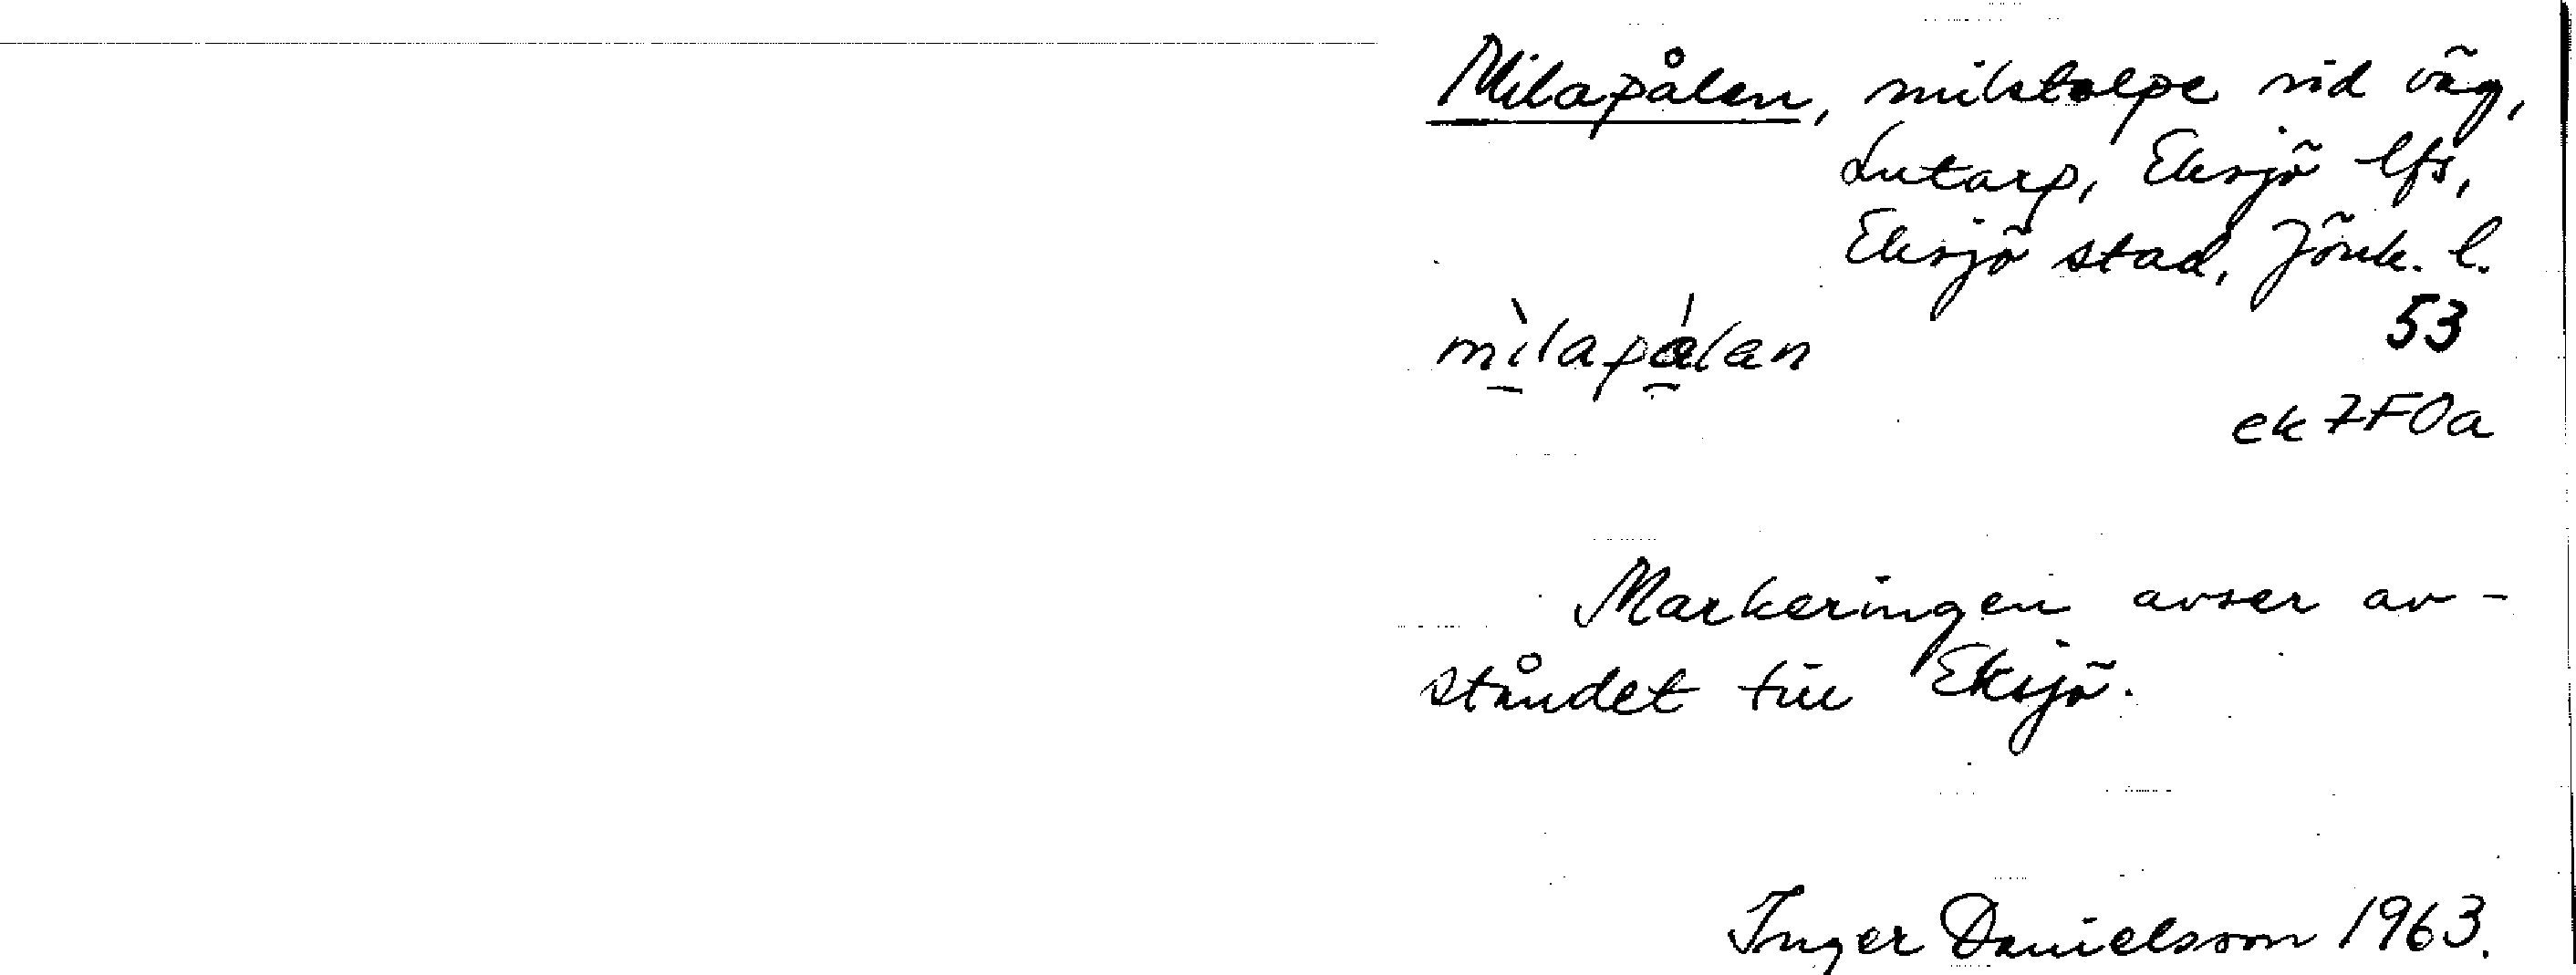 Milapålen, milstolpe vid väg,
Lutarp, Eksjö lfs,
Eksjö stad, Jönk. l.
mìlapálan
53
ek 7F0a
Markeringen avser av-
ståndet till Eksjö.
Inger Danielsson 1963.